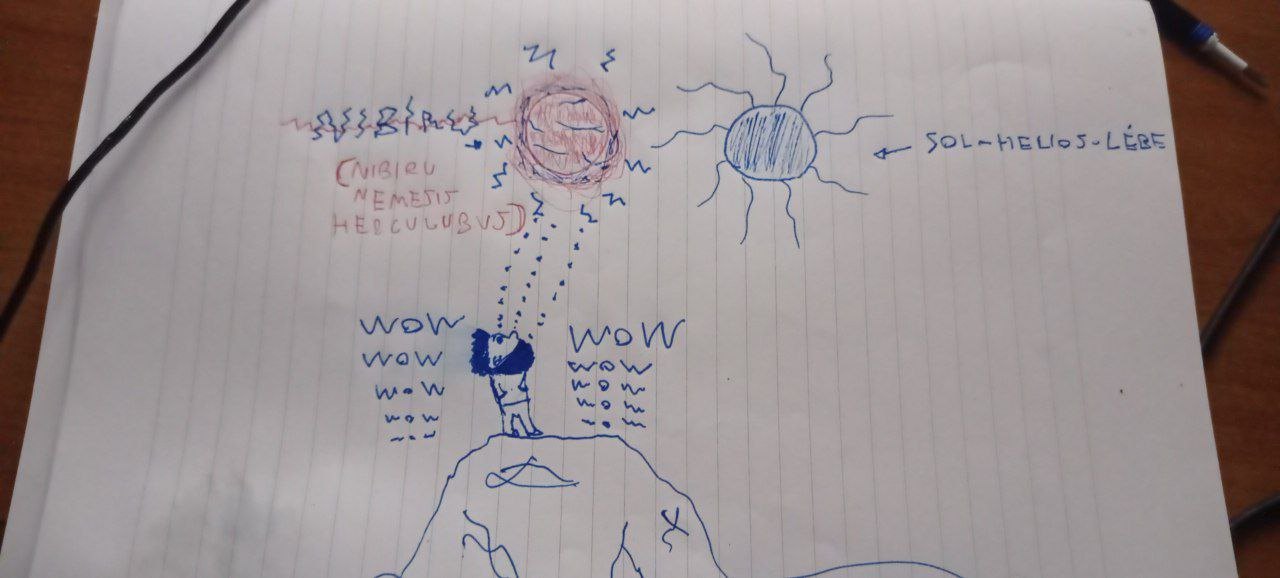 SOL-HELIOS-LÉBE
(NIBIRU
NEMESIS
HERCULUBUS)
WOW
WOW
WOW
WOW
WOW
WOW
WOW
WOW